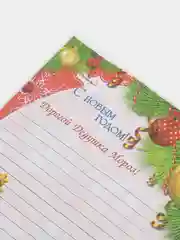 С НОВЫМ
ГОДОМ!
Дорогой Дедушка Мороз!